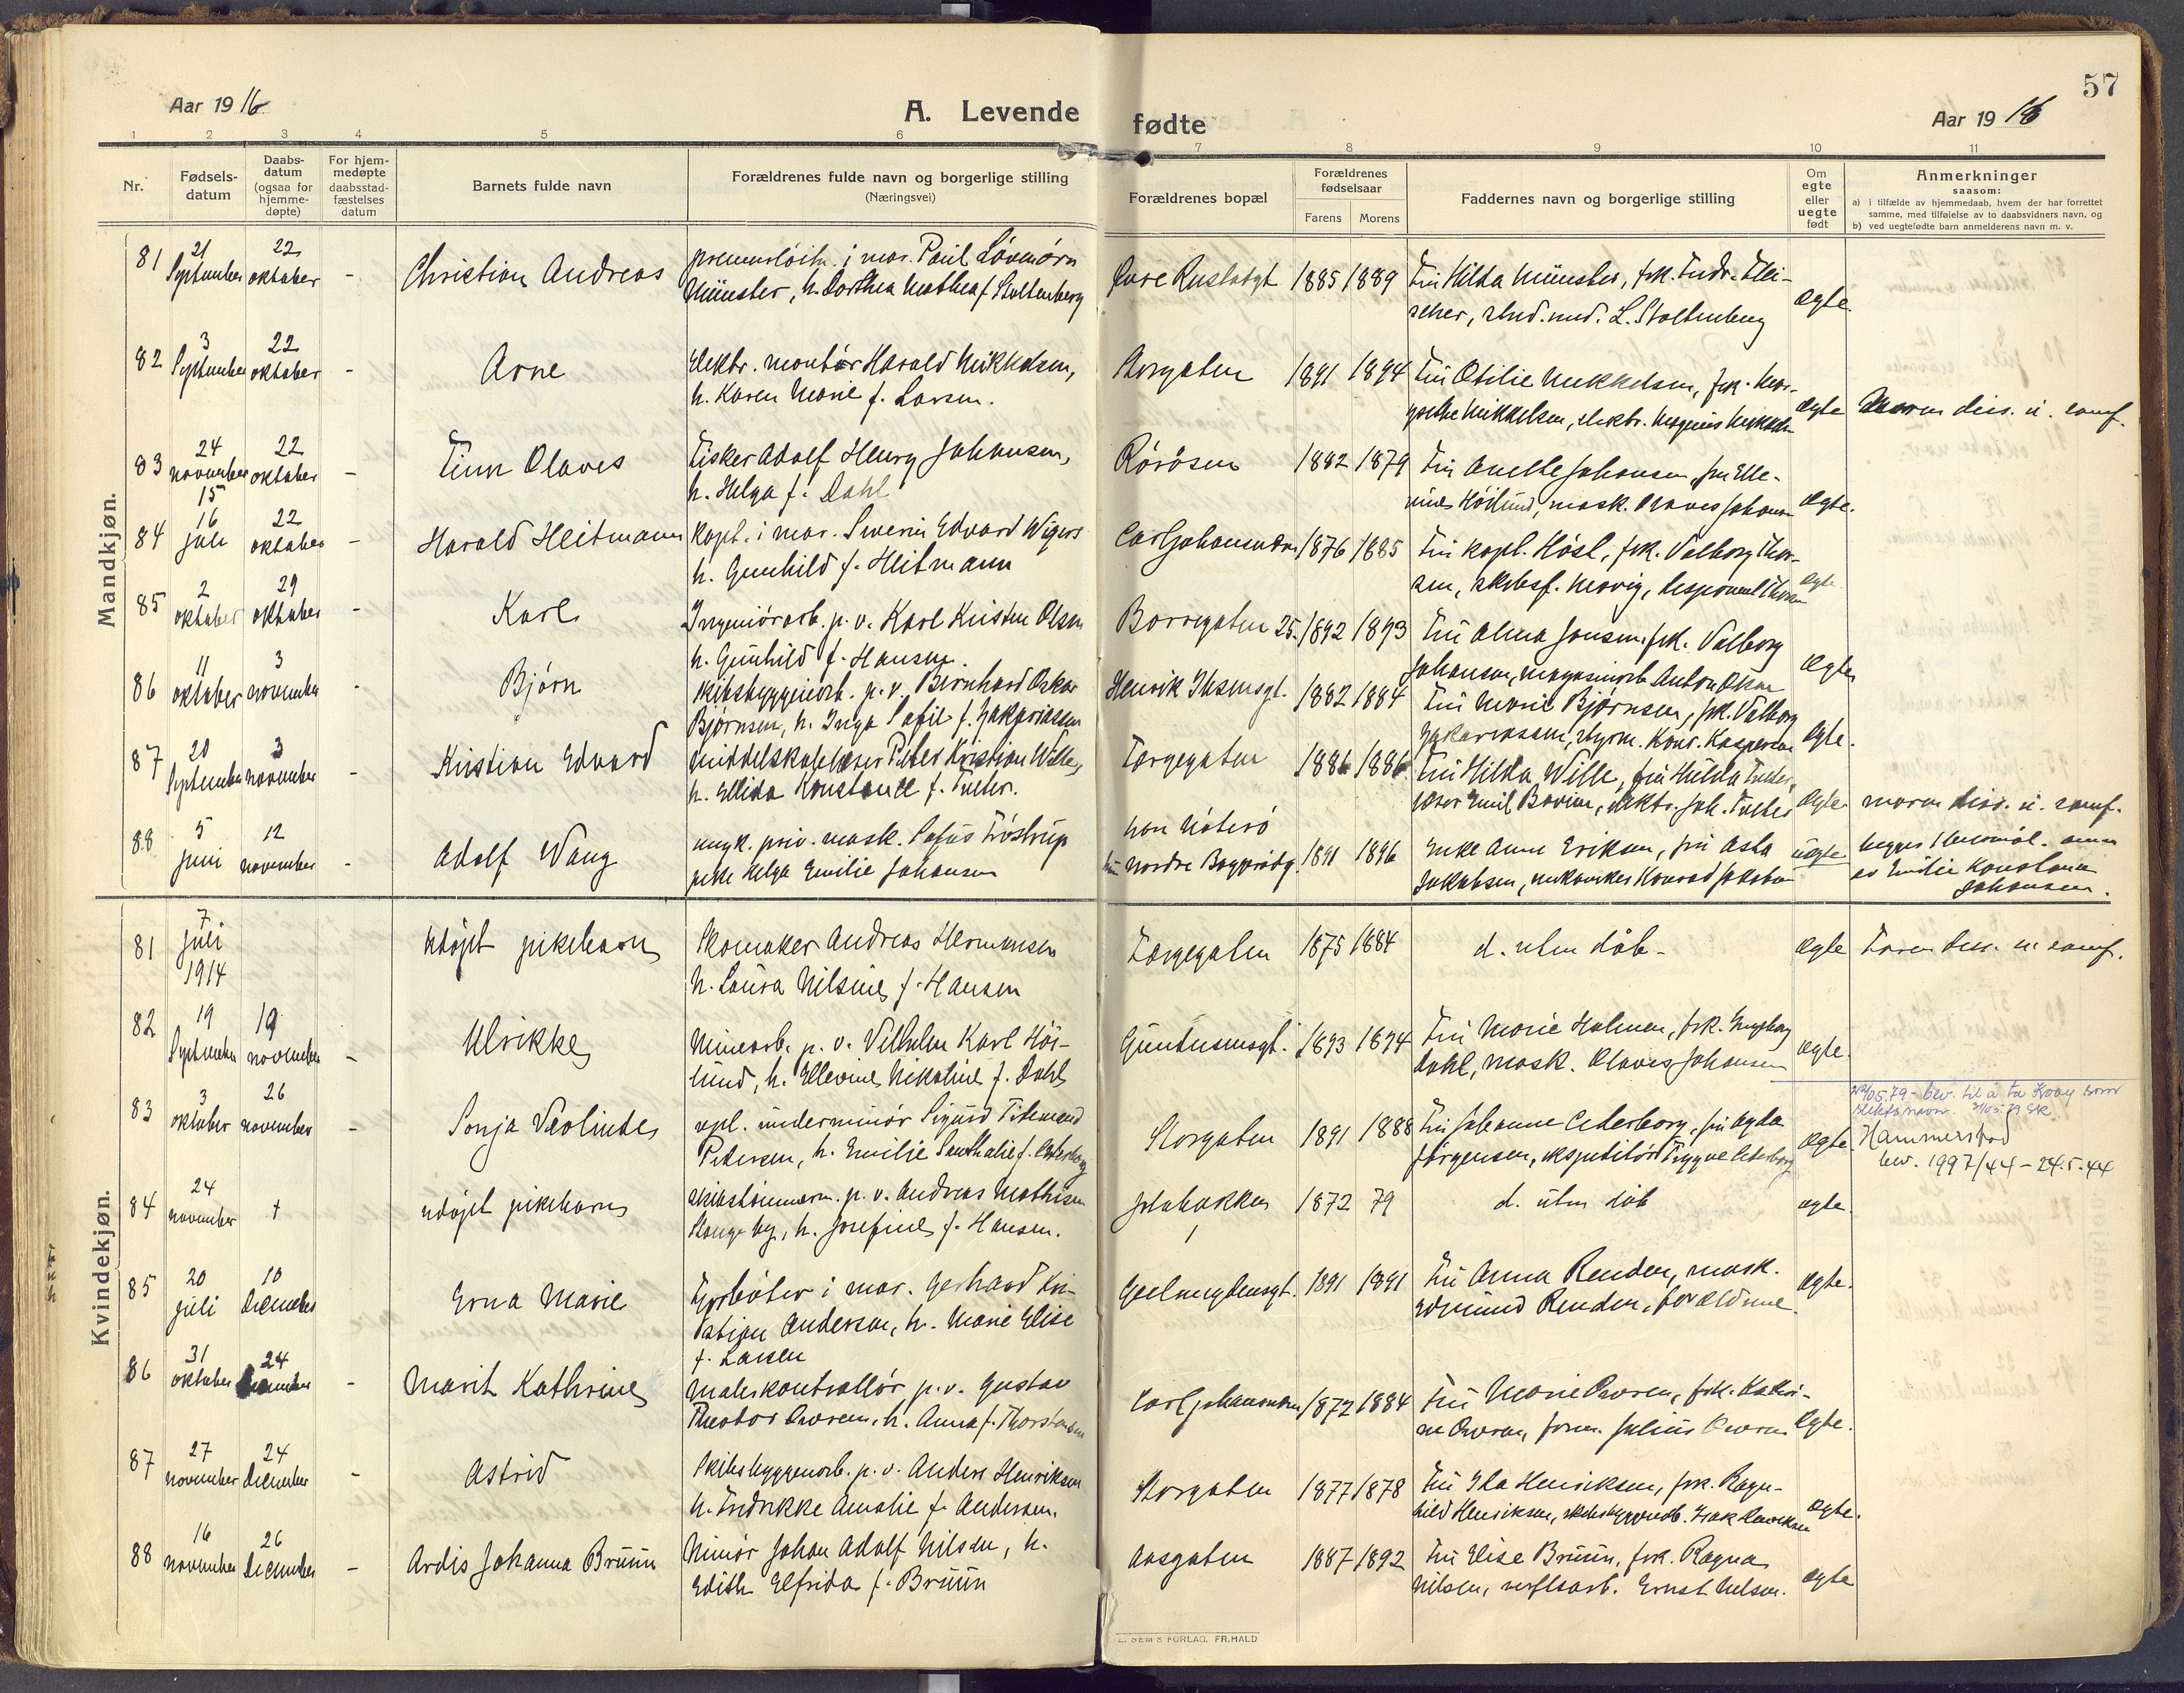 57
Aar 1916
A. Levende
fødte
Aar 1916
1 2 3 4 5 6 7 8 9 10 11
Nr.
Fødsels-
datum
Daabs-
datum
(ogsaa for
hjemme-
døpte)
For hjem-
medøpte
daabsstad-
fæstelses
datum
Barnets fulde navn
Forældrenes fulde navn og borgerlige stilling
(Næringsvei)
Forældrenes bopæl
Forældrenes
fødselsaar
Farens Morens
Faddernes navn og borgerlige stilling
Om
egte
eller
uegte
født
Anmerkninger
saasom:
a) i tilfælde av hjemmedaab, hvem der har forrettet
samme, med tilføielse av to daabsvidners navn, og
b) ved uegtefødte barn anmelderens navn m. v.
Mandkjøn.
81 21 September 22 oktober - Christian Andreas
premierløitn. i mar. Paul Løvenørn
Münster, h. Dorthea Mathea f. Stoltenberg
1885 1889 Fru Hilda Münster, frk. Fredr. Flei-
scher, stud. med. L. Stoltenberg
egte.
82 3 September 22 oktober - Arne
Elektr. montør Harald Mikkelsen,
h. Karen Marie f. Larsen.
Storgaten 1891 1894 Fru Otilie Mikkelsen, frk. Mar-
grethe Mikkelsen, elektr. Mikkelsen
egte Moren diss. u. samf.
83 24 november 15 22 oktober - Finn Olaves
Fisker Adolf Henry Johansen,
h. Helga f. Dahl
Røråsen 1882 1879 Fru Anette Johansen, fru Elle-
vine Hörlund, mask. Olaves Johansen
egte.
84 16 juli 22 oktober - Harald Heitmann
Kapt. i mar. Severin Edvard Wigers
h. Gunhild f. Heitmann
1876 1885 Fru kapt. Høst, frk. Valborg Thor-
sen, skibsf.
egte
85 2 oktober 29 oktober - Karl
Ingeniörarb. p. v. Karl Kristen Olsen
h. Gunhild f. Hansen.
Borregaten 25. 1892 1893 Fru Alma Jensen, frk. Valborg
Johansen, magasinarb. Anton Olsen
egte
86 11 oktober 3 november - Bjørn
skibsbyggeriarb. p. v. Bernhard Oskar
Bjørnsen, h. Inga Sofie f. Zakariassen
Henrik Ibsensgt. 1882 1884 Fru Marie Bjørnsen, frk. Valborg
Zakariassen, styrm. Konr. Kaspersen
egte.
87 20 September 3 november - Kristian Edvard
middelskolelærer Peter Kristian Wille,
h. Ellida Konstance f.
Torgegaten 1886 1886 Fru Hilda Wille, fru Hilda
egte moren diss. u. samf.
88 5 juni 12 november - Adolf Wang
ungk. priv. mask. Sofus Tröstrup
pike Helga Emilie Johansen
han Nøterö
hun Nordre 1891 1896 Enke Anne Eriksen, fru Asta
Jakobsen, mekaniker Konrad Jakobsen
uegte
er Emilie Konstance
Johansen.
Kvindekjøn.
81 7 juli 1914 udøpt pikebarn
Skomaker Andreas Hermansen
h. Laura Nilsine f. Hansen
Torgegaten 1875 1884 d. uten dåb -
egte Faren diss. u. samf.
82 19 September 19 november - Ulrikke
Minearb. p. v. Vilhelm Karl Hör-
lund, h. Ellevine Nikoline f. Dahl
1893 1894 Fru Marie Holmen, frk. Ingeborg
Dahl, mask. Olaves Johansen
egte.
83 3 oktober 26 november - Sonja Veolinde
vpl. underminör Sigurd Tidemand
Petersen, h. Emilie f. Cederborg
Storgaten 1891 1888 Fru Johanne Cederborg, fru Agda
Jørgensen, ekspeditör Trygve Cederborg
egte.
05.79 - bev. til å ta Kvay som
slektsnavn.
Hammerstad
bev. 1997/44 - 24.5.44
84 24 november + udøpt pikebarn
skibstømmerm. p. v. Andreas Mathisen
Stangeby, h. Josefine f. Hansen.
1872 79 d. uten dåb
egte.
85 20 juli 10 December Erna Marie
Fyrböter i mar. Gerhard Kri-
stian Andersen, h. Marie Elise
f. Larsen
Geelmuydensgt. 1891 1891 Fru Anna Rendem, mask.
Edmund Rendem, forældrene.
egte.
86 31 oktober 24 December - Marit Kathrine
Malerkontrollör p. v. Gustav
Theodor h. Anna f. Thorstensen
1872 1884 Fru Marie frk. Kathri-
ne form. Julius
egte.
87 27 november 24 December - Astrid
Skibsbyggerarb. p. v. Anders Henriksen
h. Fredrikke Amalie f. Andersen.
Storgaten 1877 1878 Fru Ida Henriksen, frk. Ragn-
hild Henriksen, skibsbyggerarb. Isak Henriksen
egte.
88 16 november 26 December - Ardis Johanna Bruun
Minör Johan Adolf Nilsen, h.
Edith Elfrida f. Bruun
Aasgaten 1887 1892 Fru Elise Bruun, frk. Ragna
Nilsen, verftsarb. Ernst Nilsen.
egte
E. SEM'S FORLAG. FR.HALD